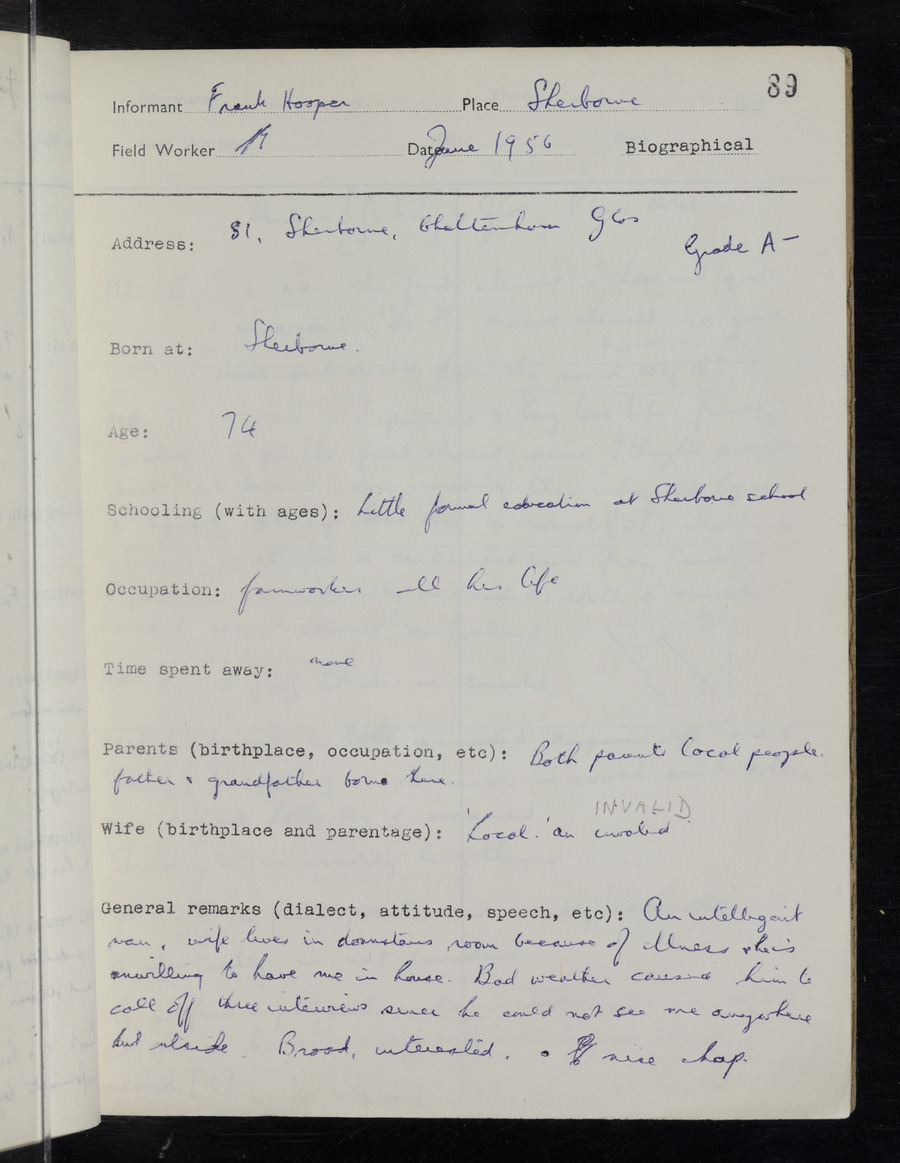 89
Informant Frank Hooper Place Sherborne
Field Worker Date June 1956 Biographical
Address: 81, Sherborne, Cheltenham Glos
Grade A-
Born at: Sherborne.
Age: 74
Schooling (with ages): Little formal education at Sherborne school
Occupation: farmworker all his life
Time spent away: none
Parents (birthplace, occupation, etc): Both parents local people.
father & grandfather borne there.
INVALID
Wife (birthplace and parentage): 'Local.' an invalid
General remarks (dialect, attitude, speech, etc): An intelligent
man, wife lives in downstairs room because of illness & he is
unwilling to have me in house. Bad weather caused him to
call off three interviews since he could not see me anywhere
but outside. Broad, interested. nice chap.